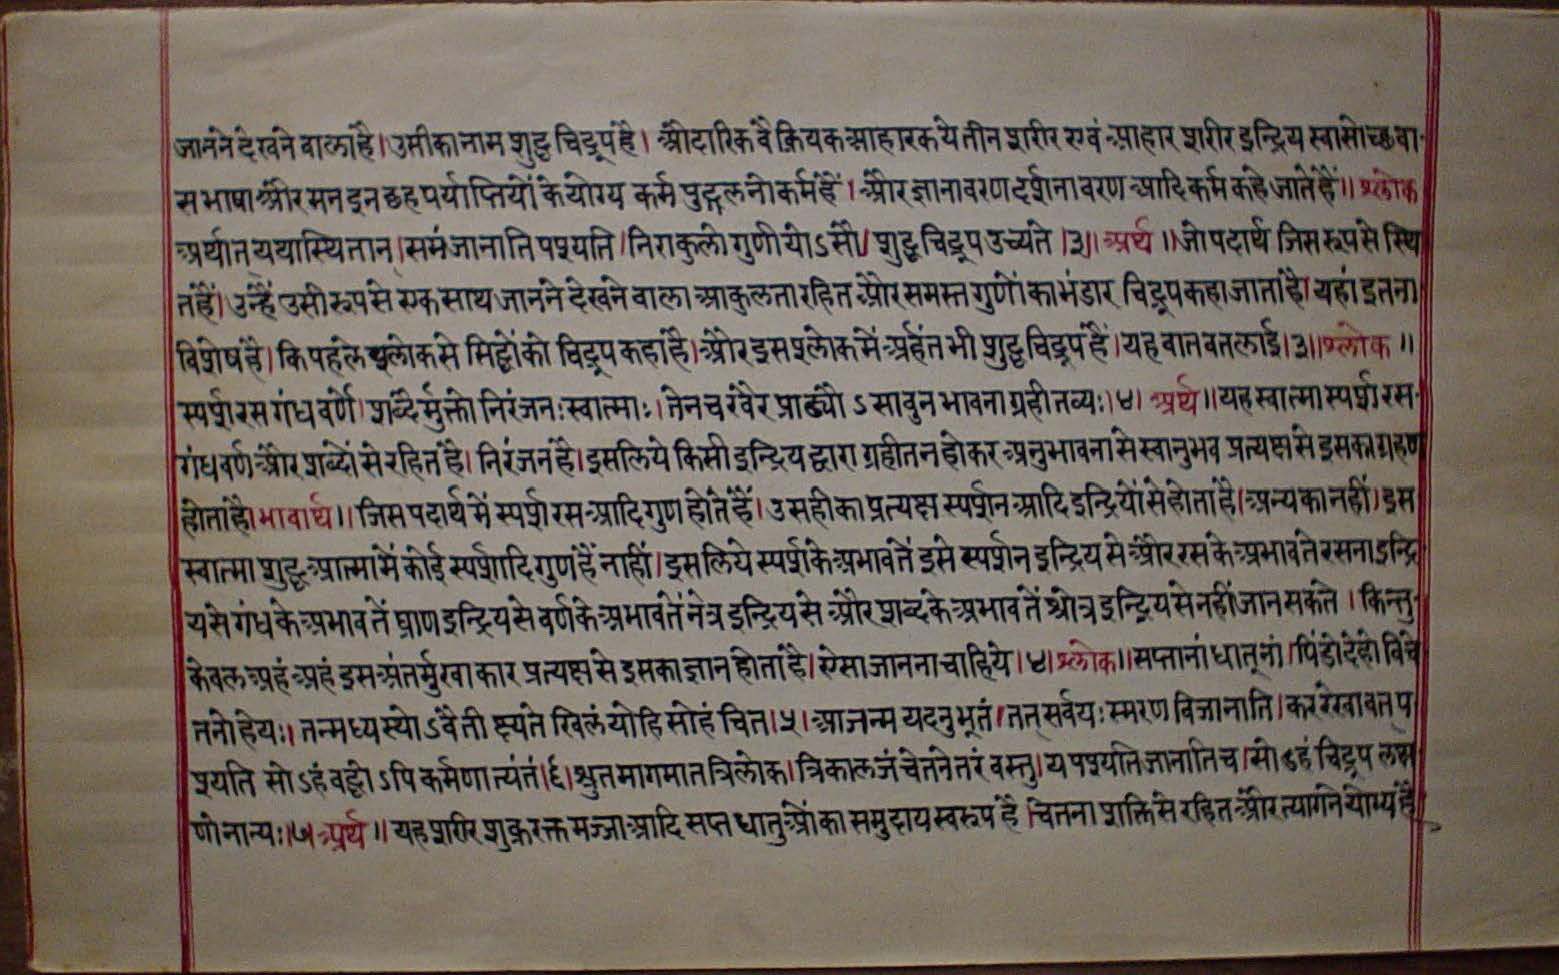 जानने देखने वाला है। उसी का नाम शुद्ध चिद्रूप है। औदारिक वैक्रियक आहारक ये तीन शरीर एवं आहार शरीर इन्द्रिय स्वासोच्छवा-
स भाषा और मन इन छह पर्याप्तियों के योग्य कर्म पुद्गल नो कर्म हैं। और ज्ञानावरण दर्शनावरण आदि कर्म कहे जाते हैं॥ श्लोक
अर्थात यथास्थितान्। समं जानाति पश्यति। निराकुलो गुणी योऽसौ। शुद्ध चिद्रूप उच्यते।३॥ अर्थ॥ जो पदार्थ जिस रूप से स्थि
त हैं। उन्हें उसी रूप से एक साथ जानने देखने वाला आकुलता रहित और समस्त गुणों का भंडार चिद्रूप कहा जाता है। यहां इतना
विशेष है। कि पहले श्लोक से सिद्धों को चिद्रूप कहा है। और इस श्लोक में अर्हंत भी शुद्ध चिद्रूप हैं। यह बात बतलाई।३॥ श्लोक॥
स्पर्श रस गंध वर्णे। शब्दैर्मुक्तो निरंजनः स्वात्माः। तेन च ऽसावुन भावना ग्रहीतव्यः।४। अर्थ॥ यह स्वात्मा स्पर्श रस-
गंध वर्ण और शब्दों से रहित है। निरंजन है। इसलिये किसी इन्द्रिय द्वारा ग्रहीत न होकर अनुभावना से स्वानुभव प्रत्यक्ष से इसका ग्रहण
होता है। भावार्थ॥ जिस पदार्थ में स्पर्श रस आदि गुण होते हैं। उस ही का प्रत्यक्ष स्पर्शन आदि इन्द्रियों से होता है। अन्य का नहीं। इस
स्वात्मा शुद्ध आत्मा में कोई स्पर्शादि गुण हैं नाहीं। इसलिये स्पर्श के अभाव तें इसे स्पर्शन इन्द्रिय से और रस के अभाव ते रसना इन्द्रि
य से गंध के अभाव तें घ्राण इन्द्रिय से वर्ण के अभाव तें नेत्र इन्द्रिय से और शब्द के अभाव तें श्रोत्र इन्द्रिय से नहीं जान सकते। किन्तु-
केवल अहं अहं इस अंतर्मुखाकार प्रत्यक्ष से इसका ज्ञान होता है। ऐसा जानना चाहिये।४। श्लोक॥ सप्तानां धातूनां। पिंडो देहो विचे
तनो हेयः। तन्मध्यस्थोऽवैती क्ष्यते खिलं यो हि सोहं चित।५। आजन्म यदनुभूतं। तत् सर्वं यः स्मरण विजानाति। कर रेखावत प
श्यति सोऽहं बद्धोऽपि कर्मणा त्यंतं।६। श्रुतमागमात त्रिलोक। त्रिकालजं चेतनेतरं वस्तु। य पश्यति जानाति च। सोऽहं चिद्रूप लक्ष
णो नान्यः।७। अर्थ॥ यह शरीर शुक्र रक्त मज्जा आदि सप्त धातुओं का समुदाय स्वरूप है। चेतना शक्ति से रहित और त्यागने योग्य है